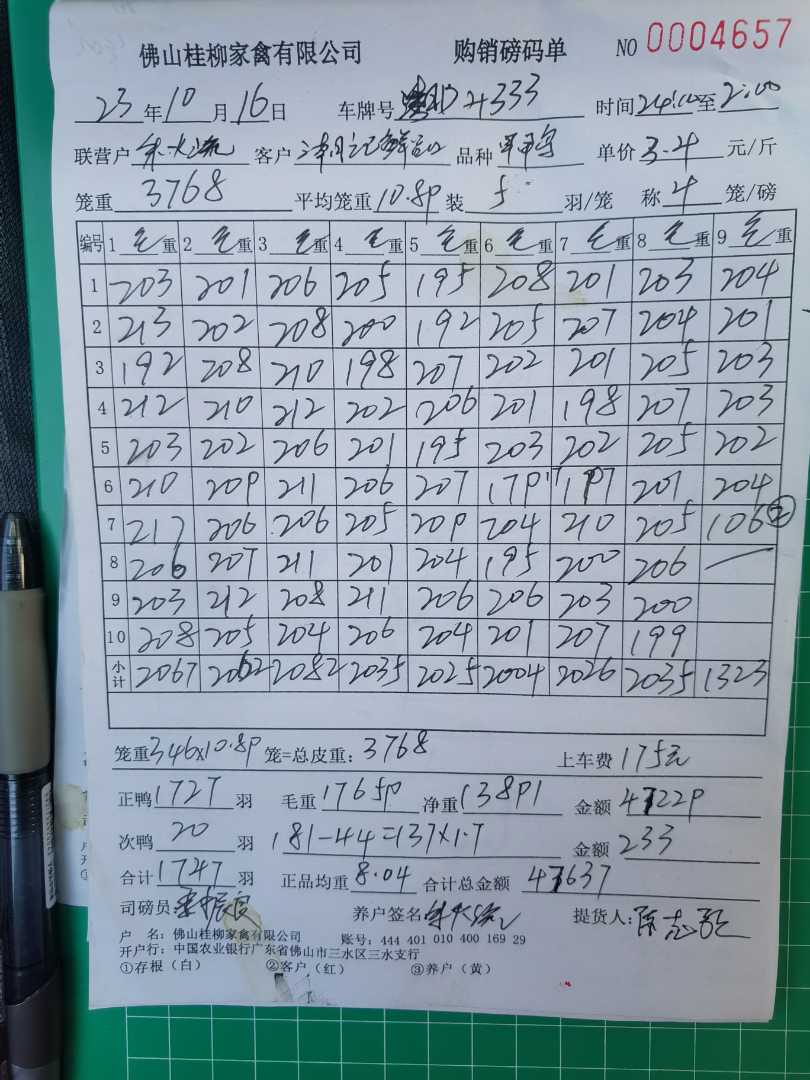 佛山桂柳家禽有限公司 购销磅码单 NO 0004657
23年10月16日 车牌号 4333 时间24:00至2:00
联营户 客户 品种 单价3.4元/斤
笼重3768 平均笼重10.89 装5羽/笼 称4笼/磅
编号 1毛重 2毛重 3毛重 4毛重 5毛重 6毛重 7毛重 8毛重 9毛重
1 203 201 206 205 195 208 201 203 204
2 213 202 208 200 192 205 207 204 201
3 192 208 210 198 207 202 201 205 203
4 212 210 212 202 206 201 198 207 203
5 203 202 206 201 195 203 202 205 202
6 210 209 211 206 207 179 197 201 204
7 217 206 206 205 209 204 210 205 106
8 206 207 211 201 204 195 200 206 —
9 203 212 208 211 206 206 203 200
10 208 205 204 206 204 201 207 199
小计 2067 2062 2082 2035 2025 2004 2026 2035 1323
笼重346x10.89笼=总皮重:3768 上车费175元
正鸭1727羽 毛重17659 净重13891 金额47229
次鸭20羽 181-44=137x1.7 金额233
合计1747羽 正品均重8.04 合计总金额47637
司磅员 养户签名 提货人:陈志
户 名:佛山桂柳家禽有限公司 账号:444 401 010 400 169 29
开户行:中国农业银行广东省佛山市三水区三水支行
①存根(白) ②客户(红) ③养户(黄)